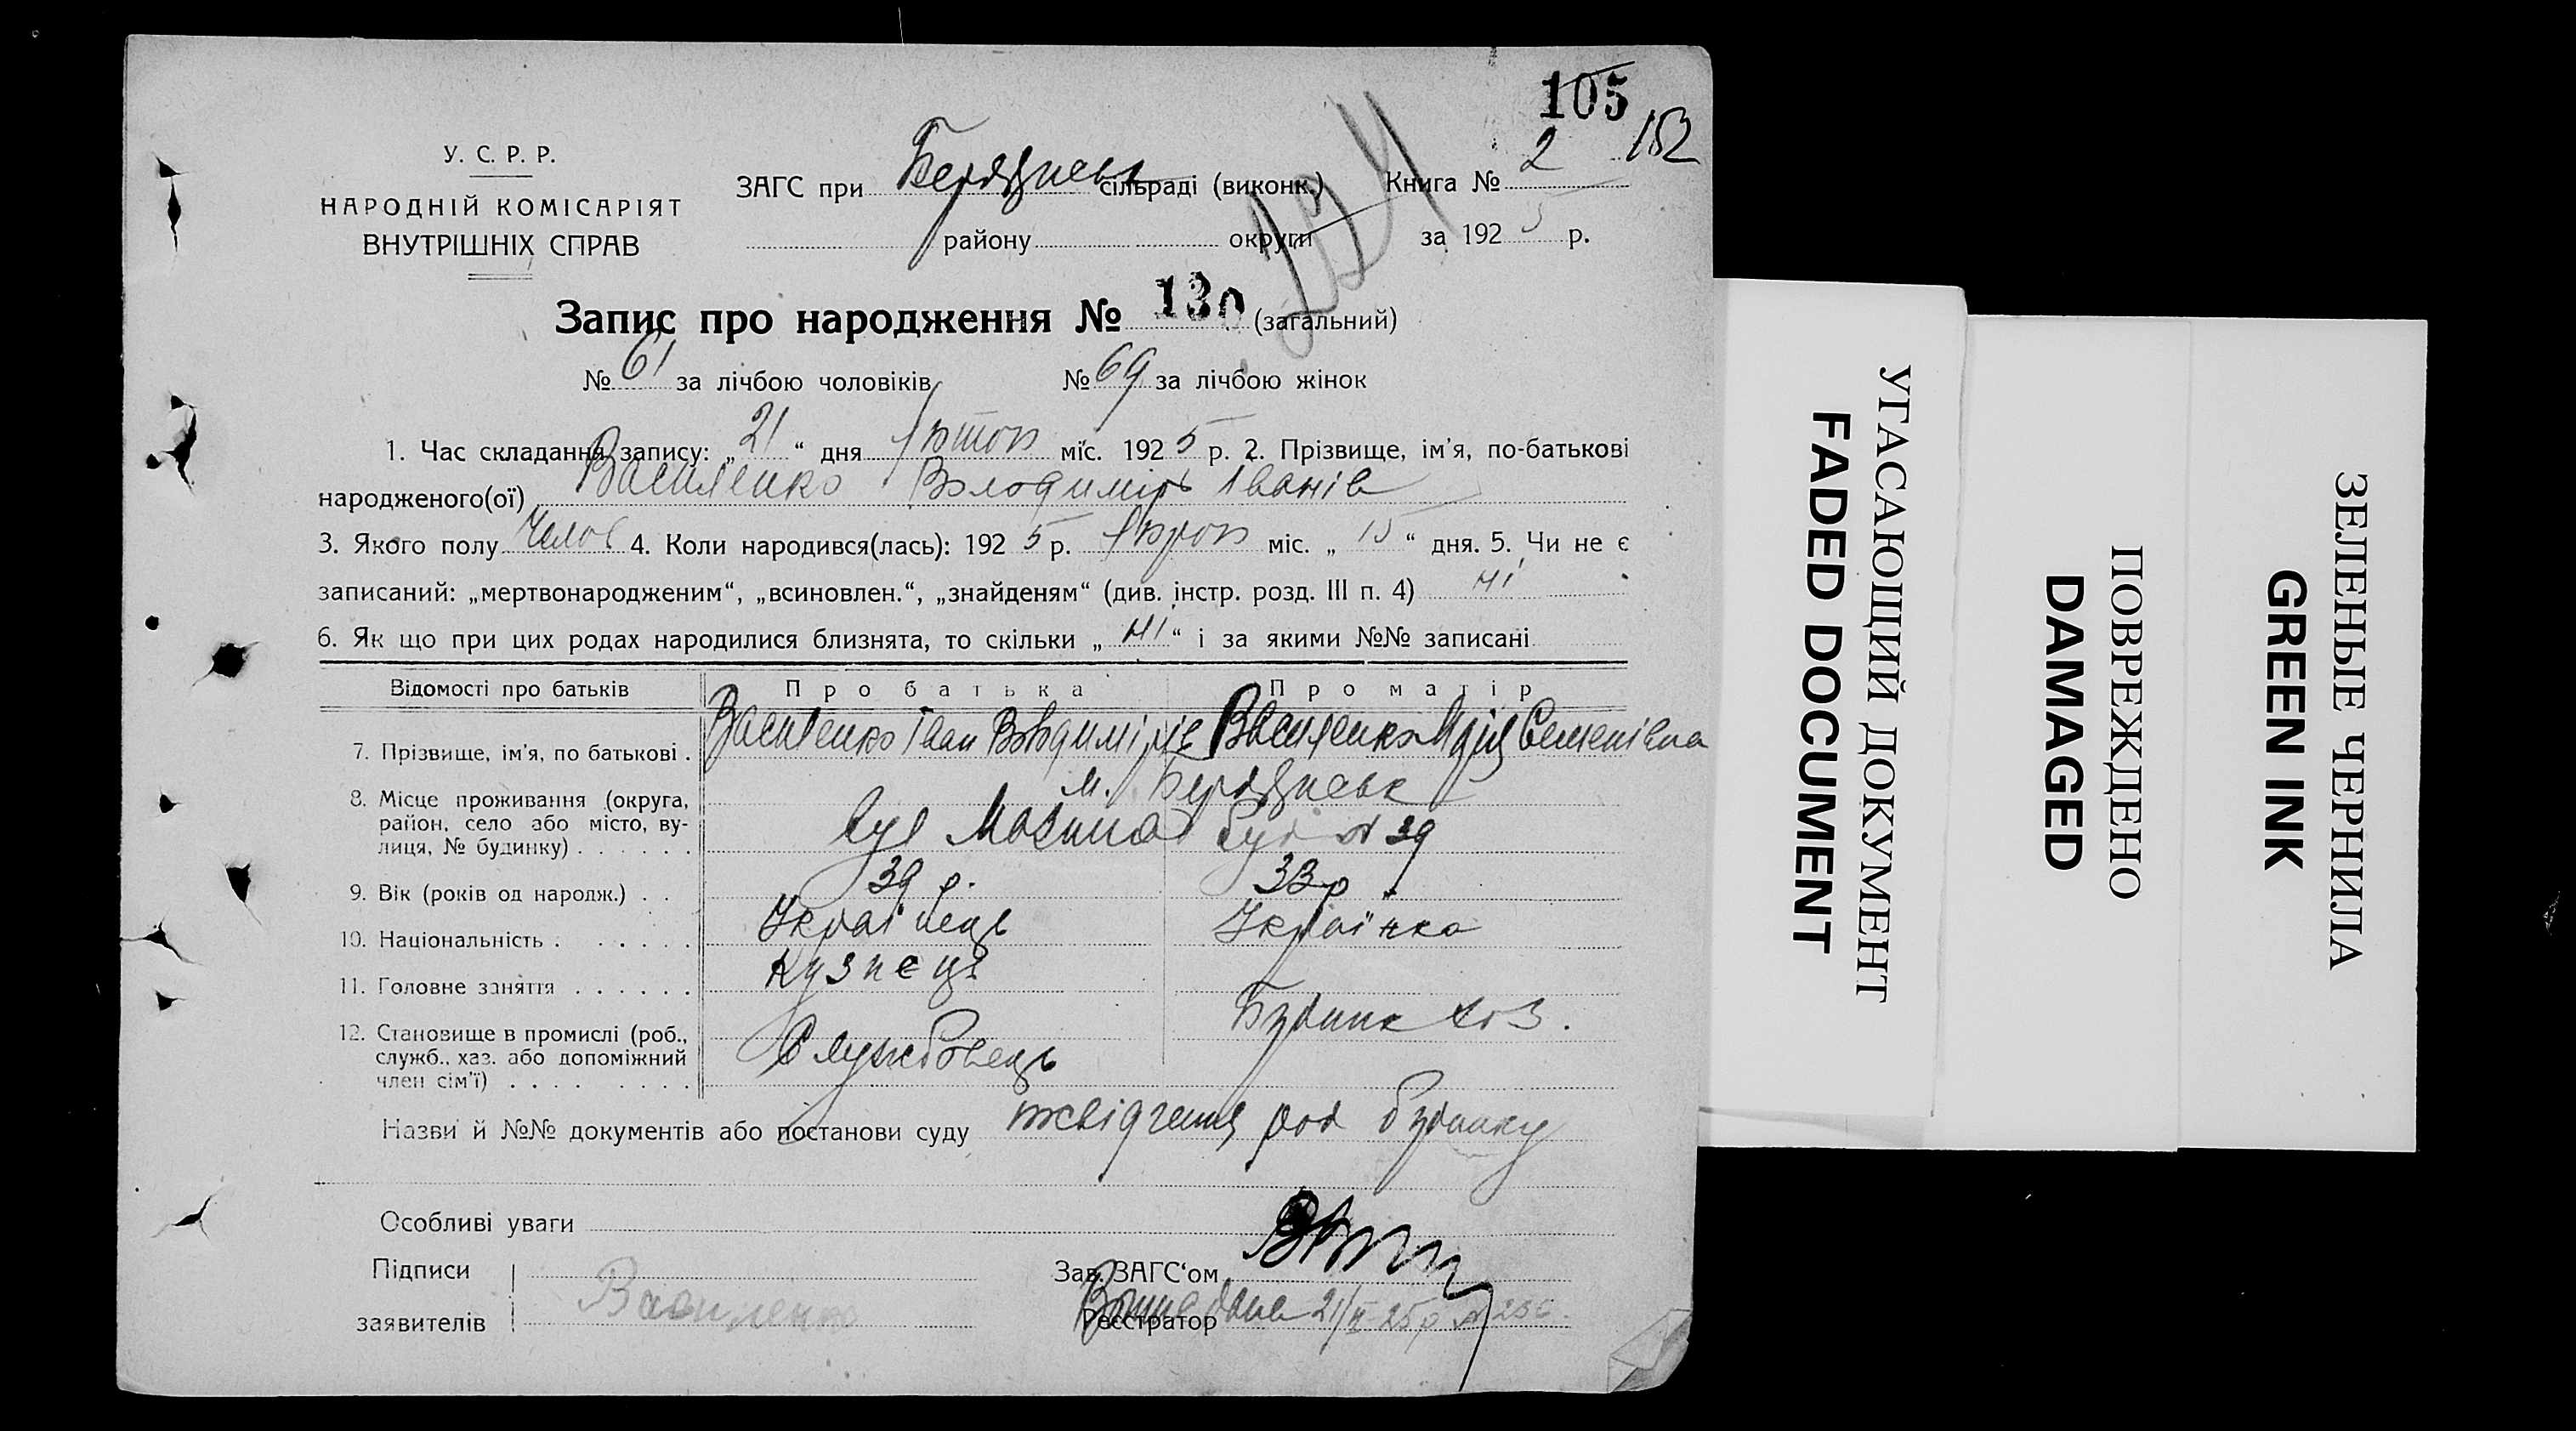 105
152
У. С. Р. Р.
НАРОДНІЙ КОМІСАРІЯТ
ВНУТРІШНІХ СПРАВ
ЗАГС при Бердянськ сільраді (виконк.) Книга № 2
району округи за 1925 р.
Запис про народження № 130 (загальний)
№ 61 за лічбою чоловіків № 69 за лічбою жінок
1. Час складання запису: „21“ дня міс. 1925 р. 2. Прізвище, ім'я, по-батькові
народженого(ої) Василенко Володимір Іванів
3. Якого полу Челов 4. Коли народився(лась): 1925 р. міс. „15“ дня. 5. Чи не є
записаний: „мертвонародженим“, „всиновлен.“, „знайденям“ (див. інстр. розд. III п. 4) ні
6. Як що при цих родах народилися близнята, то скільки „ні“ і за якими №№ записані
Відомості про батьків Про батька Про матір
7. Прізвище, ім'я, по батькові . Василенко Іван Володимірів Василенко Марія Семенівна
8. Місце проживання (округа, район, село або місто, вулиця, № будинку) . . . . . м. Бердянськ
вул Мазина буд № 39
9. Вік (років од народж.) . . 39 р. 33 р.
10. Національність . . . . . . Українець Українка
11. Головне заняття . . . . . . Кузнець
12. Становище в промислі (роб., служб., хаз. або допоміжний член сім'ї) . . . . . . . . Службовець Будинк хоз.
Назви й №№ документів або постанови суду посвідчення род будинку
Особливі уваги
Підписи
заявителів Василенко
Зав. ЗАГС'ом
Реєстратор дана 21/II 25р №
УГАСАЮЩИЙ ДОКУМЕНТ
FADED DOCUMENT
ПОВРЕЖДЕНО
DAMAGED
ЗЕЛЕНЫЕ ЧЕРНИЛА
GREEN INK